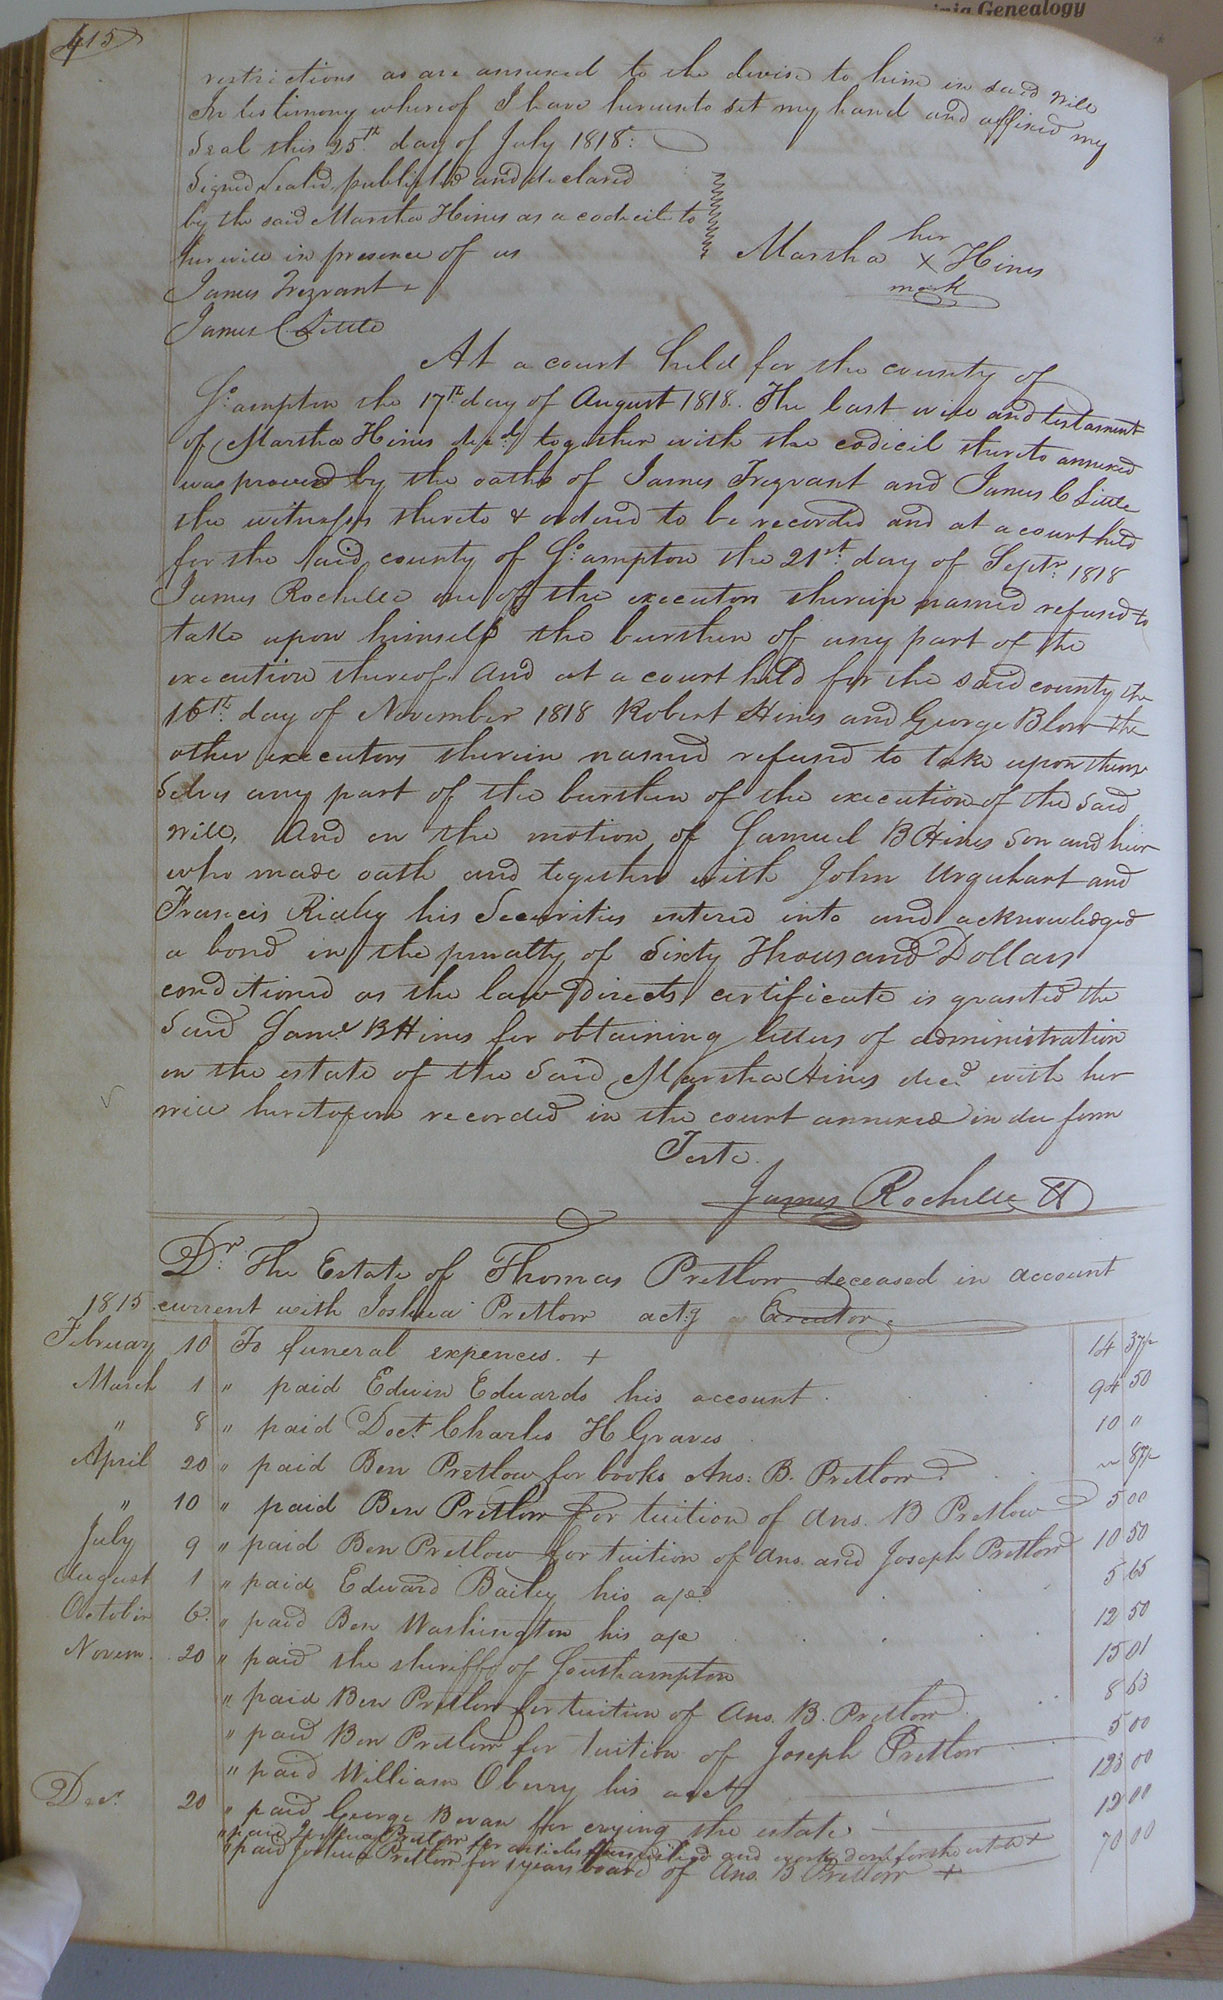 Genealogy
415
restrictions as are annexed to the devise to him in said will
In testimony whereof I have hereunto set my hand and affixed my
Seal this 25th day of July 1818:
Signed Sealed published and declared
by the said Martha Hines as a codicil to
her will in presence of us
Martha her X mark Hines
James Trezvant
James C Little
At a court held for the county of
So:ampton the 17th day of August 1818. The last will and testament
of Martha Hines decd together with the codicil thereto annexed
was proved by the oaths of James Trezvant and James C Little
the witnesses thereto & ordered to be recorded and at a court held
for the said county of So:ampton the 21st day of Septr. 1818
James Rochelle one of the executors therein named refused to
take upon himself the burthen of any part of the
execution thereof. And at a court held for the said county the
16th day of November 1818 Robert Hines and George Blow the
other executors therein named refused to take upon them
Selves any part of the burthen of the execution of the said
will, And on the motion of Samuel B Hines son and heir
who made oath and together with John Urquhart and
Francis Ridley his Securities entered into and acknowledged
a bond in the penalty of Sixty Thousand Dollars
conditioned as the law directs certificate is granted the
said Saml B Hines for obtaining letters of administration
on the estate of the said Martha Hines decd with her
will heretofore recorded in the court annexed in due form
Teste.
James Rochelle
Dr. The Estate of Thomas Pretlow deceased in account
1815 current with Joshua Pretlow actg Executor
February 10 To funeral expences. + 14 37½
March 1 " paid Edwin Edwards his account 94 50
" 8 " paid Doct. Charles H Graves 10 "
April 20 " paid Ben Pretlow for books Ans. B. Pretlow " 87½
" 10 " paid Ben Pretlow for tuition of Ans. B Pretlow 5 00
July 9 " paid Ben Pretlow for tuition of Ans. and Joseph Pretlow 10 50
August 1 " paid Edward Bailey his 5 65
October 6 " paid Ben Washington his 12 50
Novem. 20 " paid the sheriff of Southampton 15 01
" paid Ben Pretlow for tuition of Ans. B. Pretlow 8 63
" paid Ben Pretlow for tuition of Joseph Pretlow 5 00
" paid William Obery his acct 123 00
Decr. 20 " paid George Bevan for crying the estate 12 00
" paid Joshua Pretlow for articles furnished and work done for the estate +
" paid Joshua Pretlow for 1 years board of Ans. B Pretlow + 70 00